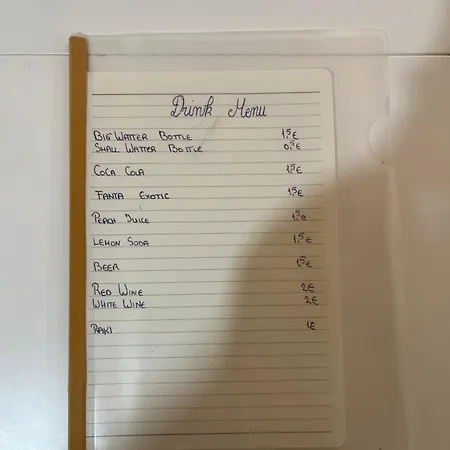 Drink Menu
BIG WATTER BOTTLE 1,5€
SMALL WATTER BOTTLE 0,5€
COCA COLA 1,5€
FANTA EXOTIC 1,5€
PEACH JUICE 1,5€
LEMON SODA 1,5€
BEER 1,5€
RED WINE 2€
WHITE WINE 2€
RAKI 1€